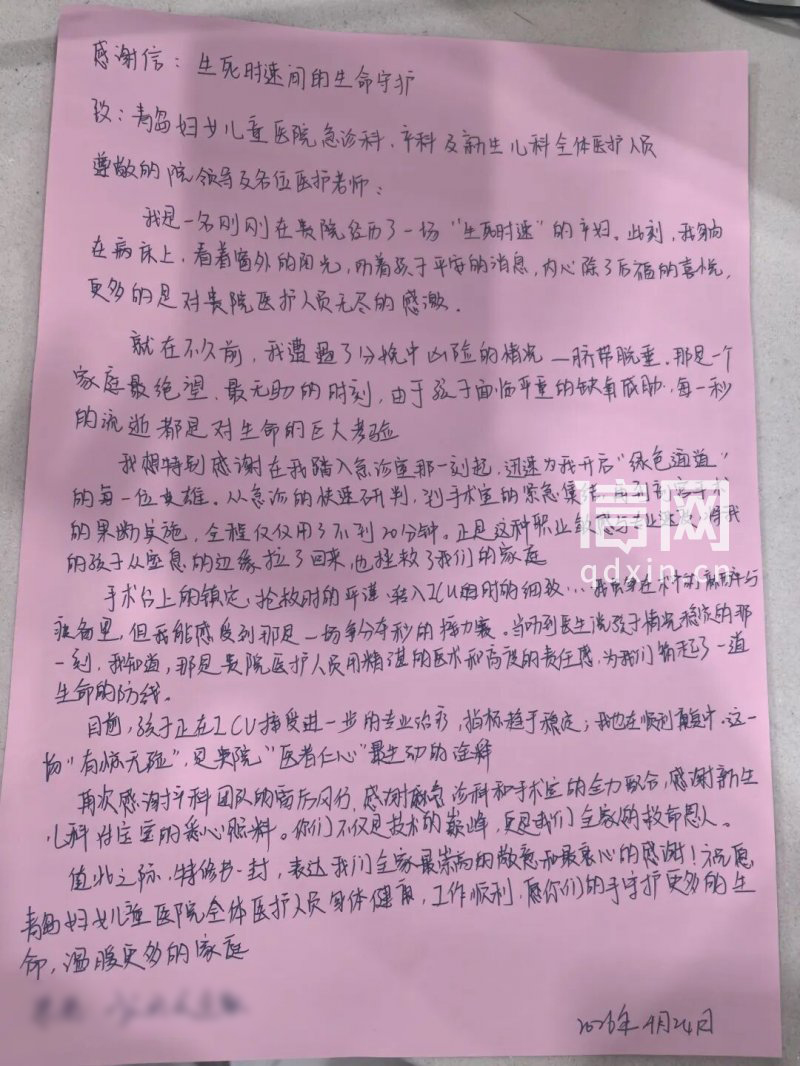 感谢信：生死时速间的生命守护
致：青岛妇女儿童医院急诊科、产科及新生儿科全体医护人员
尊敬的院领导及各位医护老师：
我是一名刚刚在贵院经历了一场“生死时速”的产妇。此刻，我躺
在病床上，看着窗外的阳光，听着孩子平安的消息，内心除了后福的喜悦，
更多的是对贵院医护人员无尽的感激。
就在不久前，我遭遇了分娩中凶险的情况—脐带脱垂。那是一个
家庭最绝望、最无助的时刻，由于孩子面临严重的缺氧威胁，每一秒
的流逝都是对生命的巨大考验
我想特别感谢在我踏入急诊室那一刻起，迅速为我开启“绿色通道”
的每一位英雄。从急诊的快速研判，到手术室的紧急集结，再到
的果断实施，全程仅仅用了不到20分钟。正是这种职业敏感与专业 将我
的孩子从窒息的边缘拉了回来，也拯救了我们的家庭
信网
qdxin.cn
手术台上的镇定，抢救时的严谨，转入ICU时的细致...
但我能感受到那是一场争分夺秒的接力赛。当听到医生说孩子情况稳定的那
一刻，我知道，那是贵院医护人员用精湛的医术和高度的责任感，为我们筑起了一道
生命的防线。
目前，孩子正在ICU接受进一步的专业治疗，指标趋于稳定；我也在顺利康复中。这一
场“有惊无险”，是贵院“医者仁心”最生动的诠释
再次感谢产科团队的雷厉风行，感谢 急诊科和手术室的全力配合，感谢新生
儿科对宝宝的悉心照料。你们不仅是技术的巅峰，更是我们全家的救命恩人。
值此之际，特修书一封，表达我们全家最崇高的敬意和最衷心的感谢！祝愿
青岛妇女儿童医院全体医护人员身体健康，工作顺利，愿你们的手守护更多的生
命，温暖更多的家庭
2026年4月24日